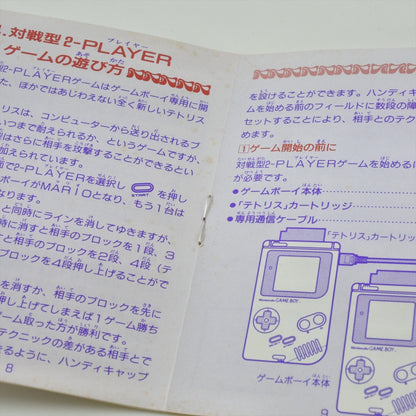 . 対戦型2-PLAYER
プレイヤー
ゲームの遊び方
型2-PLAYERゲームはゲームボーイ専用に開
た、ほかではあじわえない全く新しいテトリス
リスは、コンピューターから送り出されるブ
いつまで耐えられるか、というゲームですが、
はさらに相手を攻撃することができるとい
加えられています。
2-PLAYERを選択し START を押し
ボーイがMARIOとなり、もう1台は
なります。
と同時にラインを消してゆきますが、
時に消すと相手のブロックを1段、3
と相手のブロックを2段、4段（テ
ブロックを4段押し上げることがで
を消すか、相手のブロックを先に
押し上げてしまえば1ゲーム勝ち
ゲーム取った方が勝利です。
テクニックの差がある相手とで
るように、ハンディキャップ
8
を設けることができます。ハンディキ
ムを始める前のフィールドに数段の障
セットすることにより、相手とのテク
めます。
1 ゲーム開始の前に
対戦型2-PLAYERゲームを始めるに
が必要です。
●ゲームボーイ本体
●「テトリス」カートリッジ
●専用通信ケーブル
「テトリス」カートリッ
Nintendo GAME BOY
ゲームボーイ本体
9